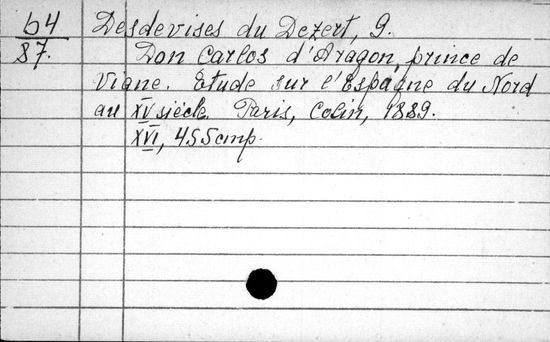 64 Desdevises du Dezert, G.
87. Don Carlos d'Aragon, prince de
Viane. Etude sur l'Espagne du Nord
au XV siècle. Paris, Colin, 1889.
XVI, 455 стр.